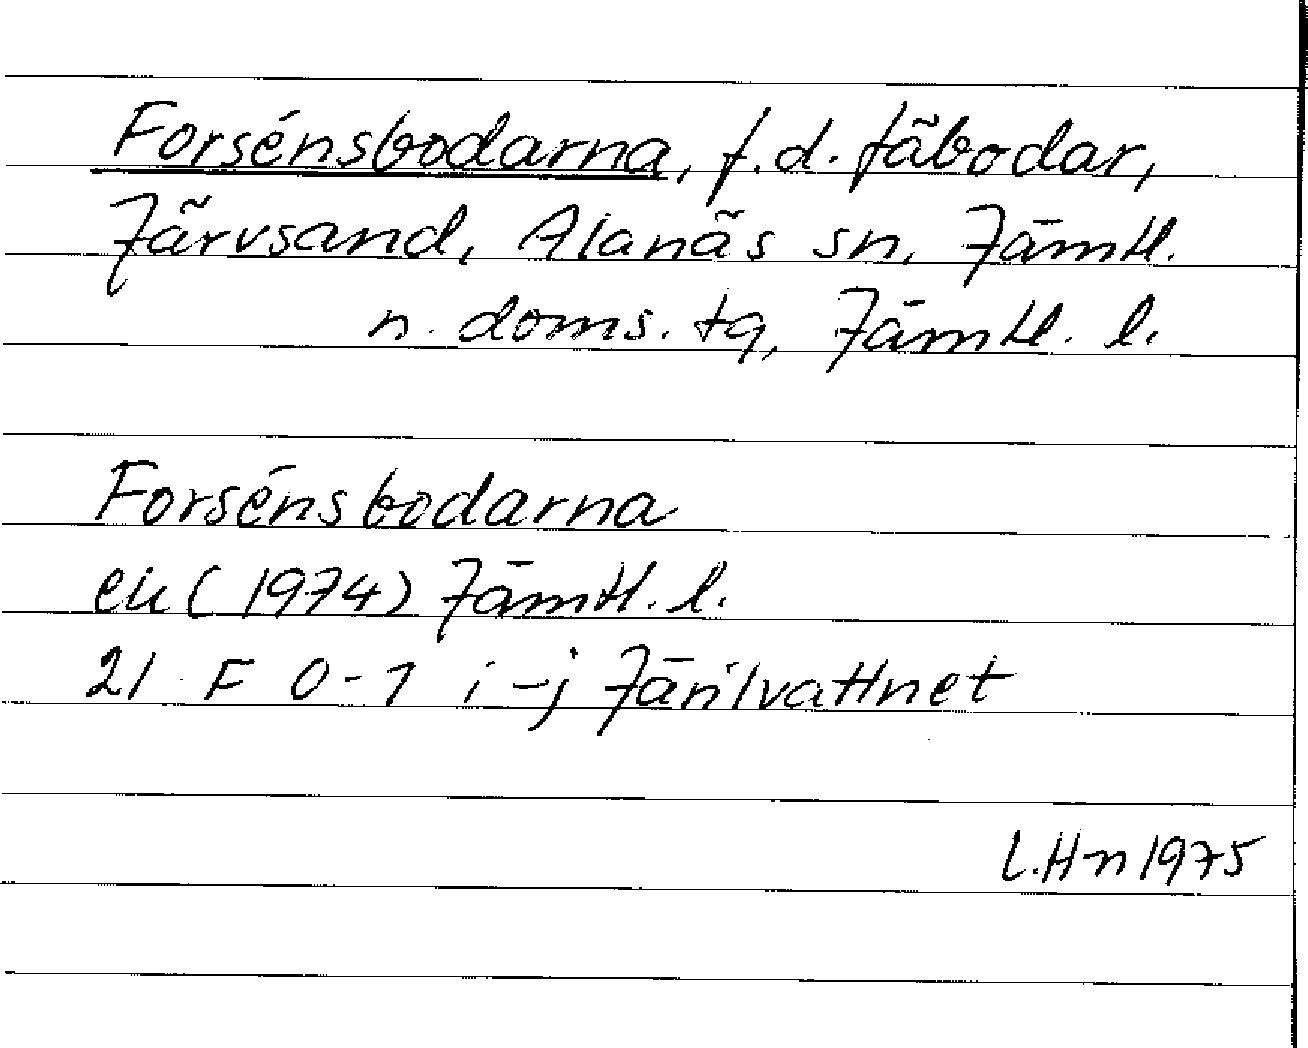 Forsénsbodarna, f.d. fäbodar,
Järvsand, Alanäs sn, Jämtl.
n. doms. tg, Jämtl. l.
Forsénsbodarna
ek (1974) Jämtl. l.
21 F 0-1 i-j Järilvattnet
L.Hn 1975